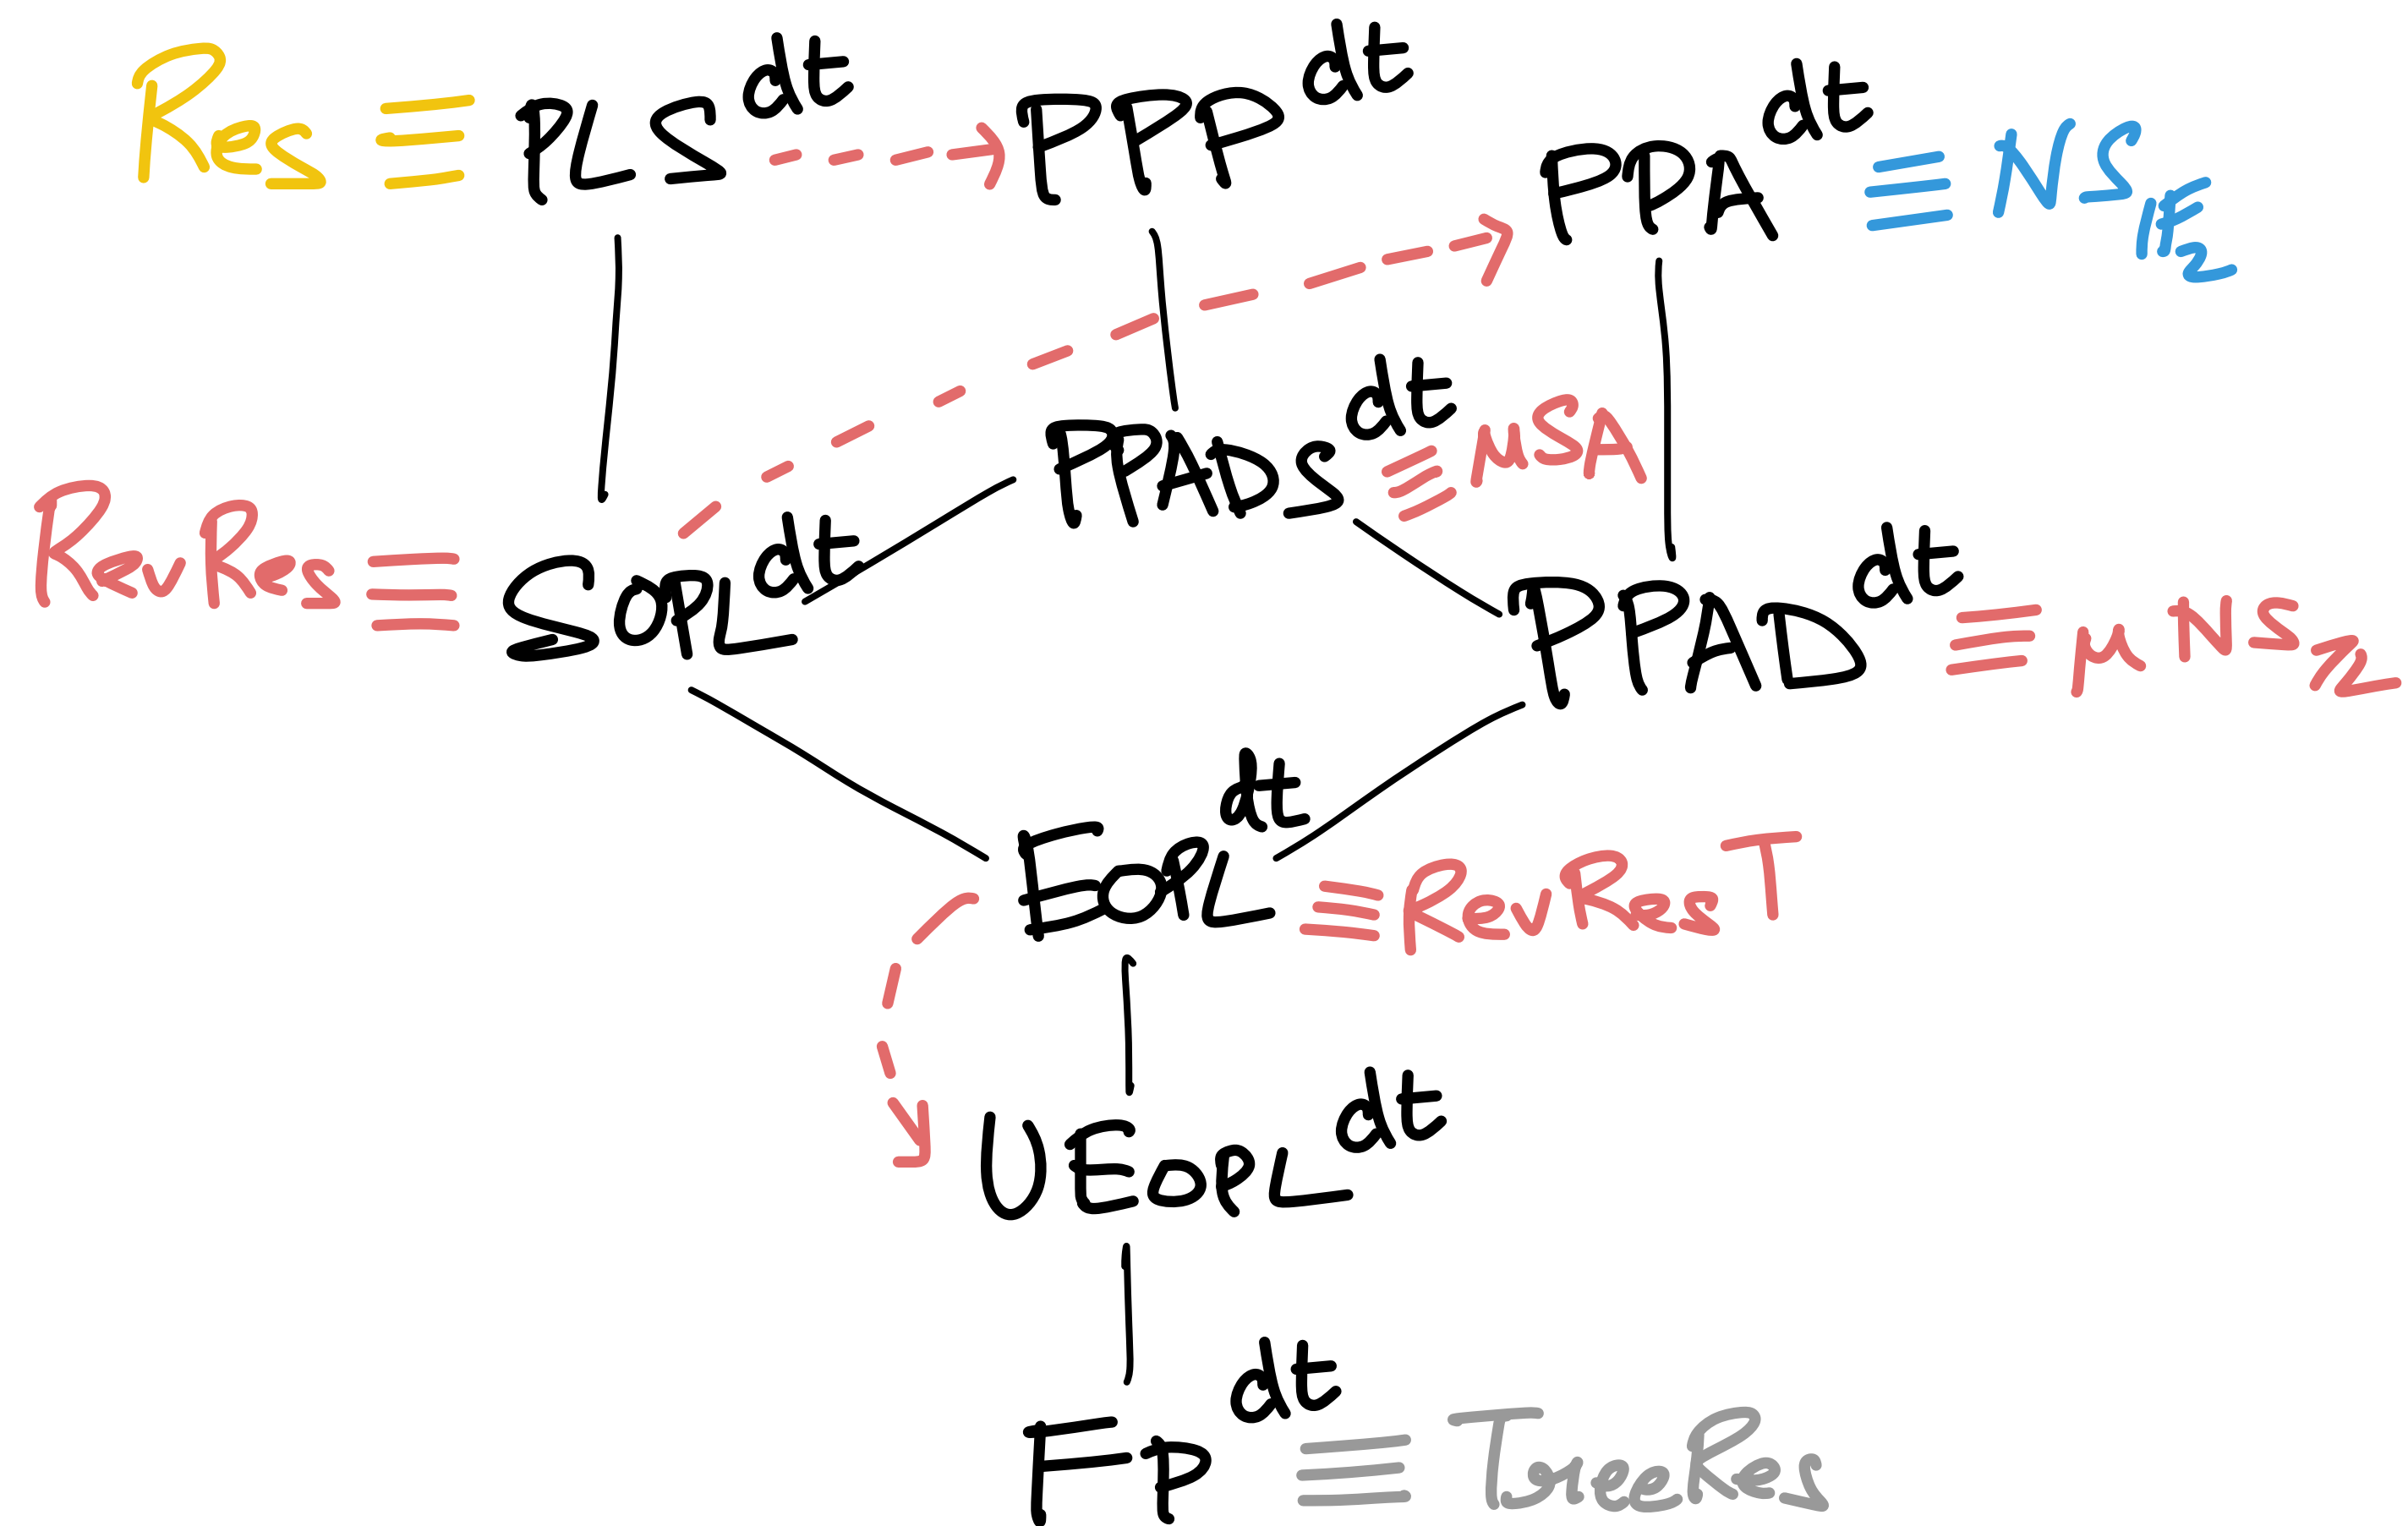 Res ≡ PLS^dt PPP^dt PPA^dt ≡ NS_F_2
PPADS^dt ≡ uSA
RevRes ≡ SOPL^dt PPAD^dt ≡ uNS_Z
EOPL^dt ≡ RevResT
UEOPL^dt
FP^dt ≡ TreeRes